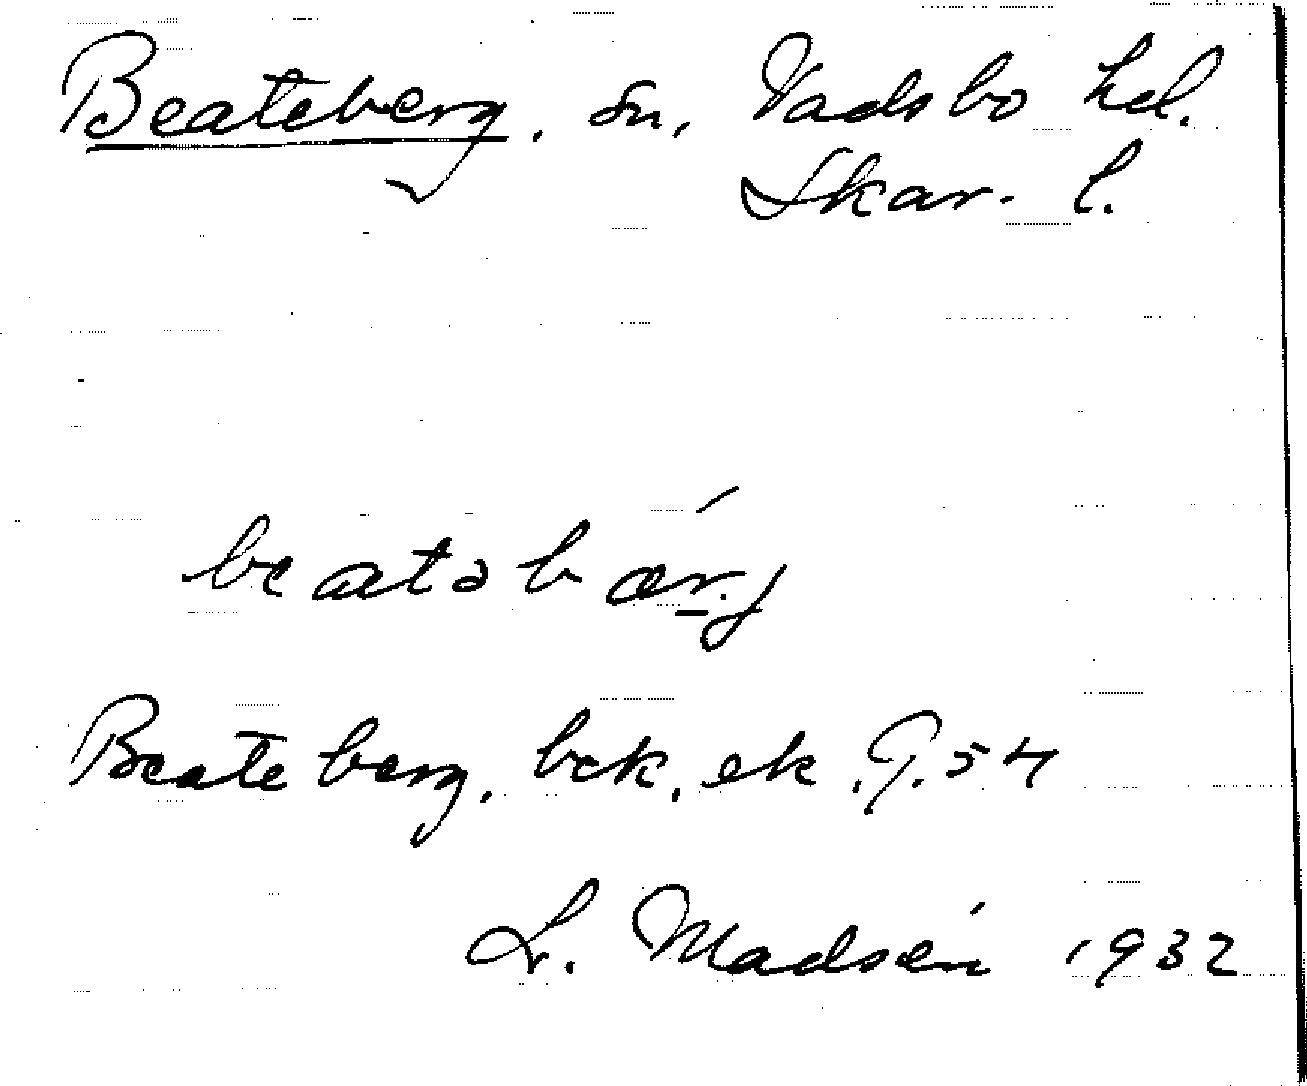 Beateberg, sn, Vadsbo hd.
Skar. l.
beatəbǽrj
Beateberg, bek. ek. G. 54
L. Madsén 1932